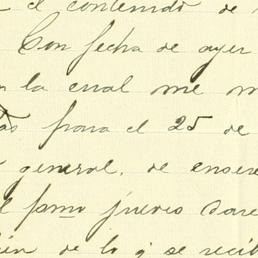 el contenido de
Con fecha de ayer
en la cual me m
para el 25 de
general, de enser
pmo jueves
de lo q se recib